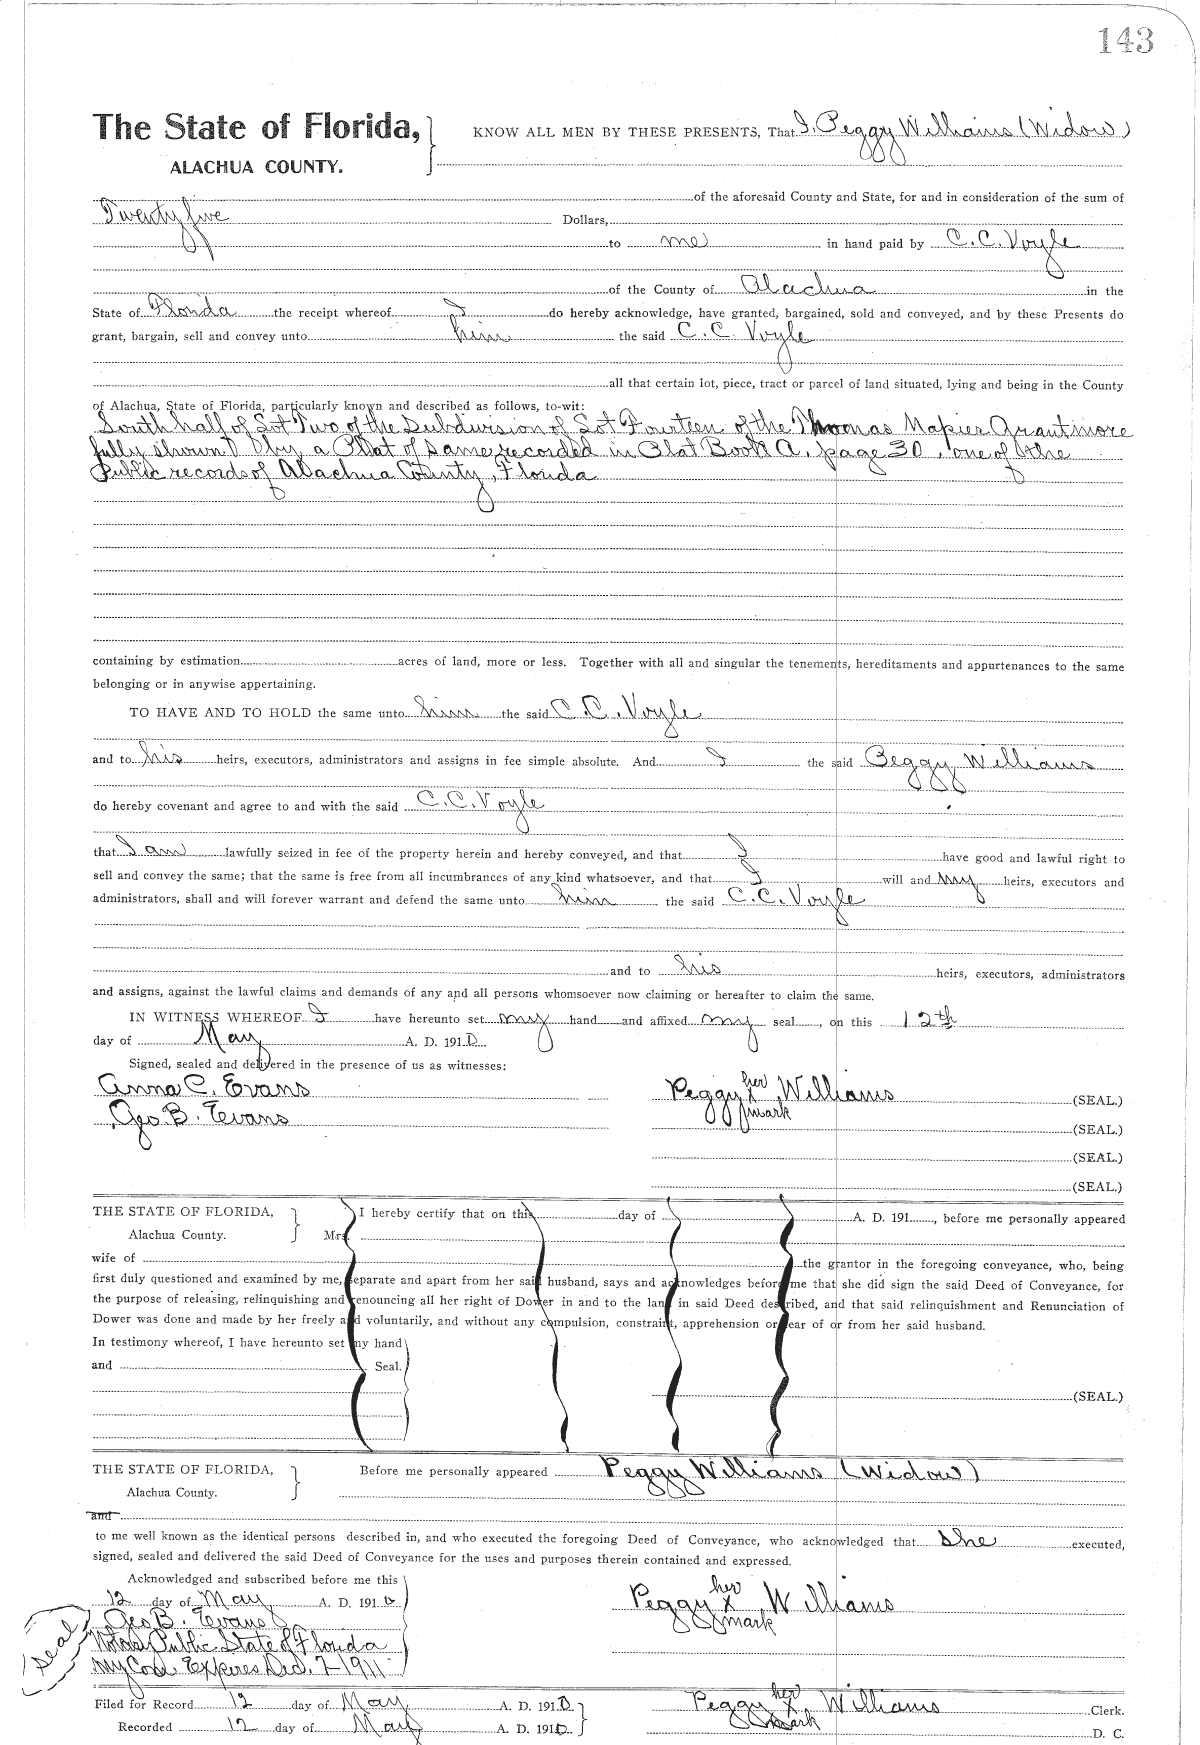 143
The State of Florida,
ALACHUA COUNTY.
KNOW ALL MEN BY THESE PRESENTS, That I, Peggy Williams (Widow)
of the aforesaid County and State, for and in consideration of the sum of
Twenty five Dollars,
to me in hand paid by C. C. Voyle
of the County of Alachua in the
State of Florida the receipt whereof I do hereby acknowledge, have granted, bargained, sold and conveyed, and by these Presents do
grant, bargain, sell and convey unto him the said C. C. Voyle
all that certain lot, piece, tract or parcel of land situated, lying and being in the County
of Alachua, State of Florida, particularly known and described as follows, to-wit:
South half of Lot Two of the Subdivision of Lot Fourteen of the Thomas Napier Grant more
fully shown by a Plat of same recorded in Plat Book A, page 30, one of the
Public records of Alachua County, Florida
containing by estimation acres of land, more or less. Together with all and singular the tenements, hereditaments and appurtenances to the same
belonging or in anywise appertaining.
TO HAVE AND TO HOLD the same unto him the said C. C. Voyle
and to his heirs, executors, administrators and assigns in fee simple absolute. And I the said Peggy Williams
do hereby covenant and agree to and with the said C. C. Voyle
that I am lawfully seized in fee of the property herein and hereby conveyed, and that I have good and lawful right to
sell and convey the same; that the same is free from all incumbrances of any kind whatsoever, and that I will and my heirs, executors and
administrators, shall and will forever warrant and defend the same unto him the said C. C. Voyle
and to his heirs, executors, administrators
and assigns, against the lawful claims and demands of any and all persons whomsoever now claiming or hereafter to claim the same.
IN WITNESS WHEREOF I have hereunto set my hand and affixed my seal, on this 12th
day of May A. D. 1910.
Signed, sealed and delivered in the presence of us as witnesses:
Anna C. Evans
Geo B. Evans
Peggy her x mark Williams (SEAL.)
(SEAL.)
(SEAL.)
(SEAL.)
THE STATE OF FLORIDA,
Alachua County.
I hereby certify that on this day of A. D. 191, before me personally appeared
Mrs.
wife of the grantor in the foregoing conveyance, who, being
first duly questioned and examined by me, separate and apart from her said husband, says and acknowledges before me that she did sign the said Deed of Conveyance, for
the purpose of releasing, relinquishing and renouncing all her right of Dower in and to the land in said Deed described, and that said relinquishment and Renunciation of
Dower was done and made by her freely and voluntarily, and without any compulsion, constraint, apprehension or fear of or from her said husband.
In testimony whereof, I have hereunto set my hand
and Seal.
(SEAL.)
THE STATE OF FLORIDA,
Alachua County.
Before me personally appeared Peggy Williams (Widow)
and
to me well known as the identical persons described in, and who executed the foregoing Deed of Conveyance, who acknowledged that she executed,
signed, sealed and delivered the said Deed of Conveyance for the uses and purposes therein contained and expressed.
Acknowledged and subscribed before me this
12 day of May A. D. 1910
Geo B. Evans
Notary Public State of Florida
My Com Expires Dec. 7-1911
(Seal)
Peggy her x mark Williams
Filed for Record 12 day of May A. D. 1910
Recorded 12 day of May A. D. 1910
Peggy her x mark Williams Clerk.
D. C.